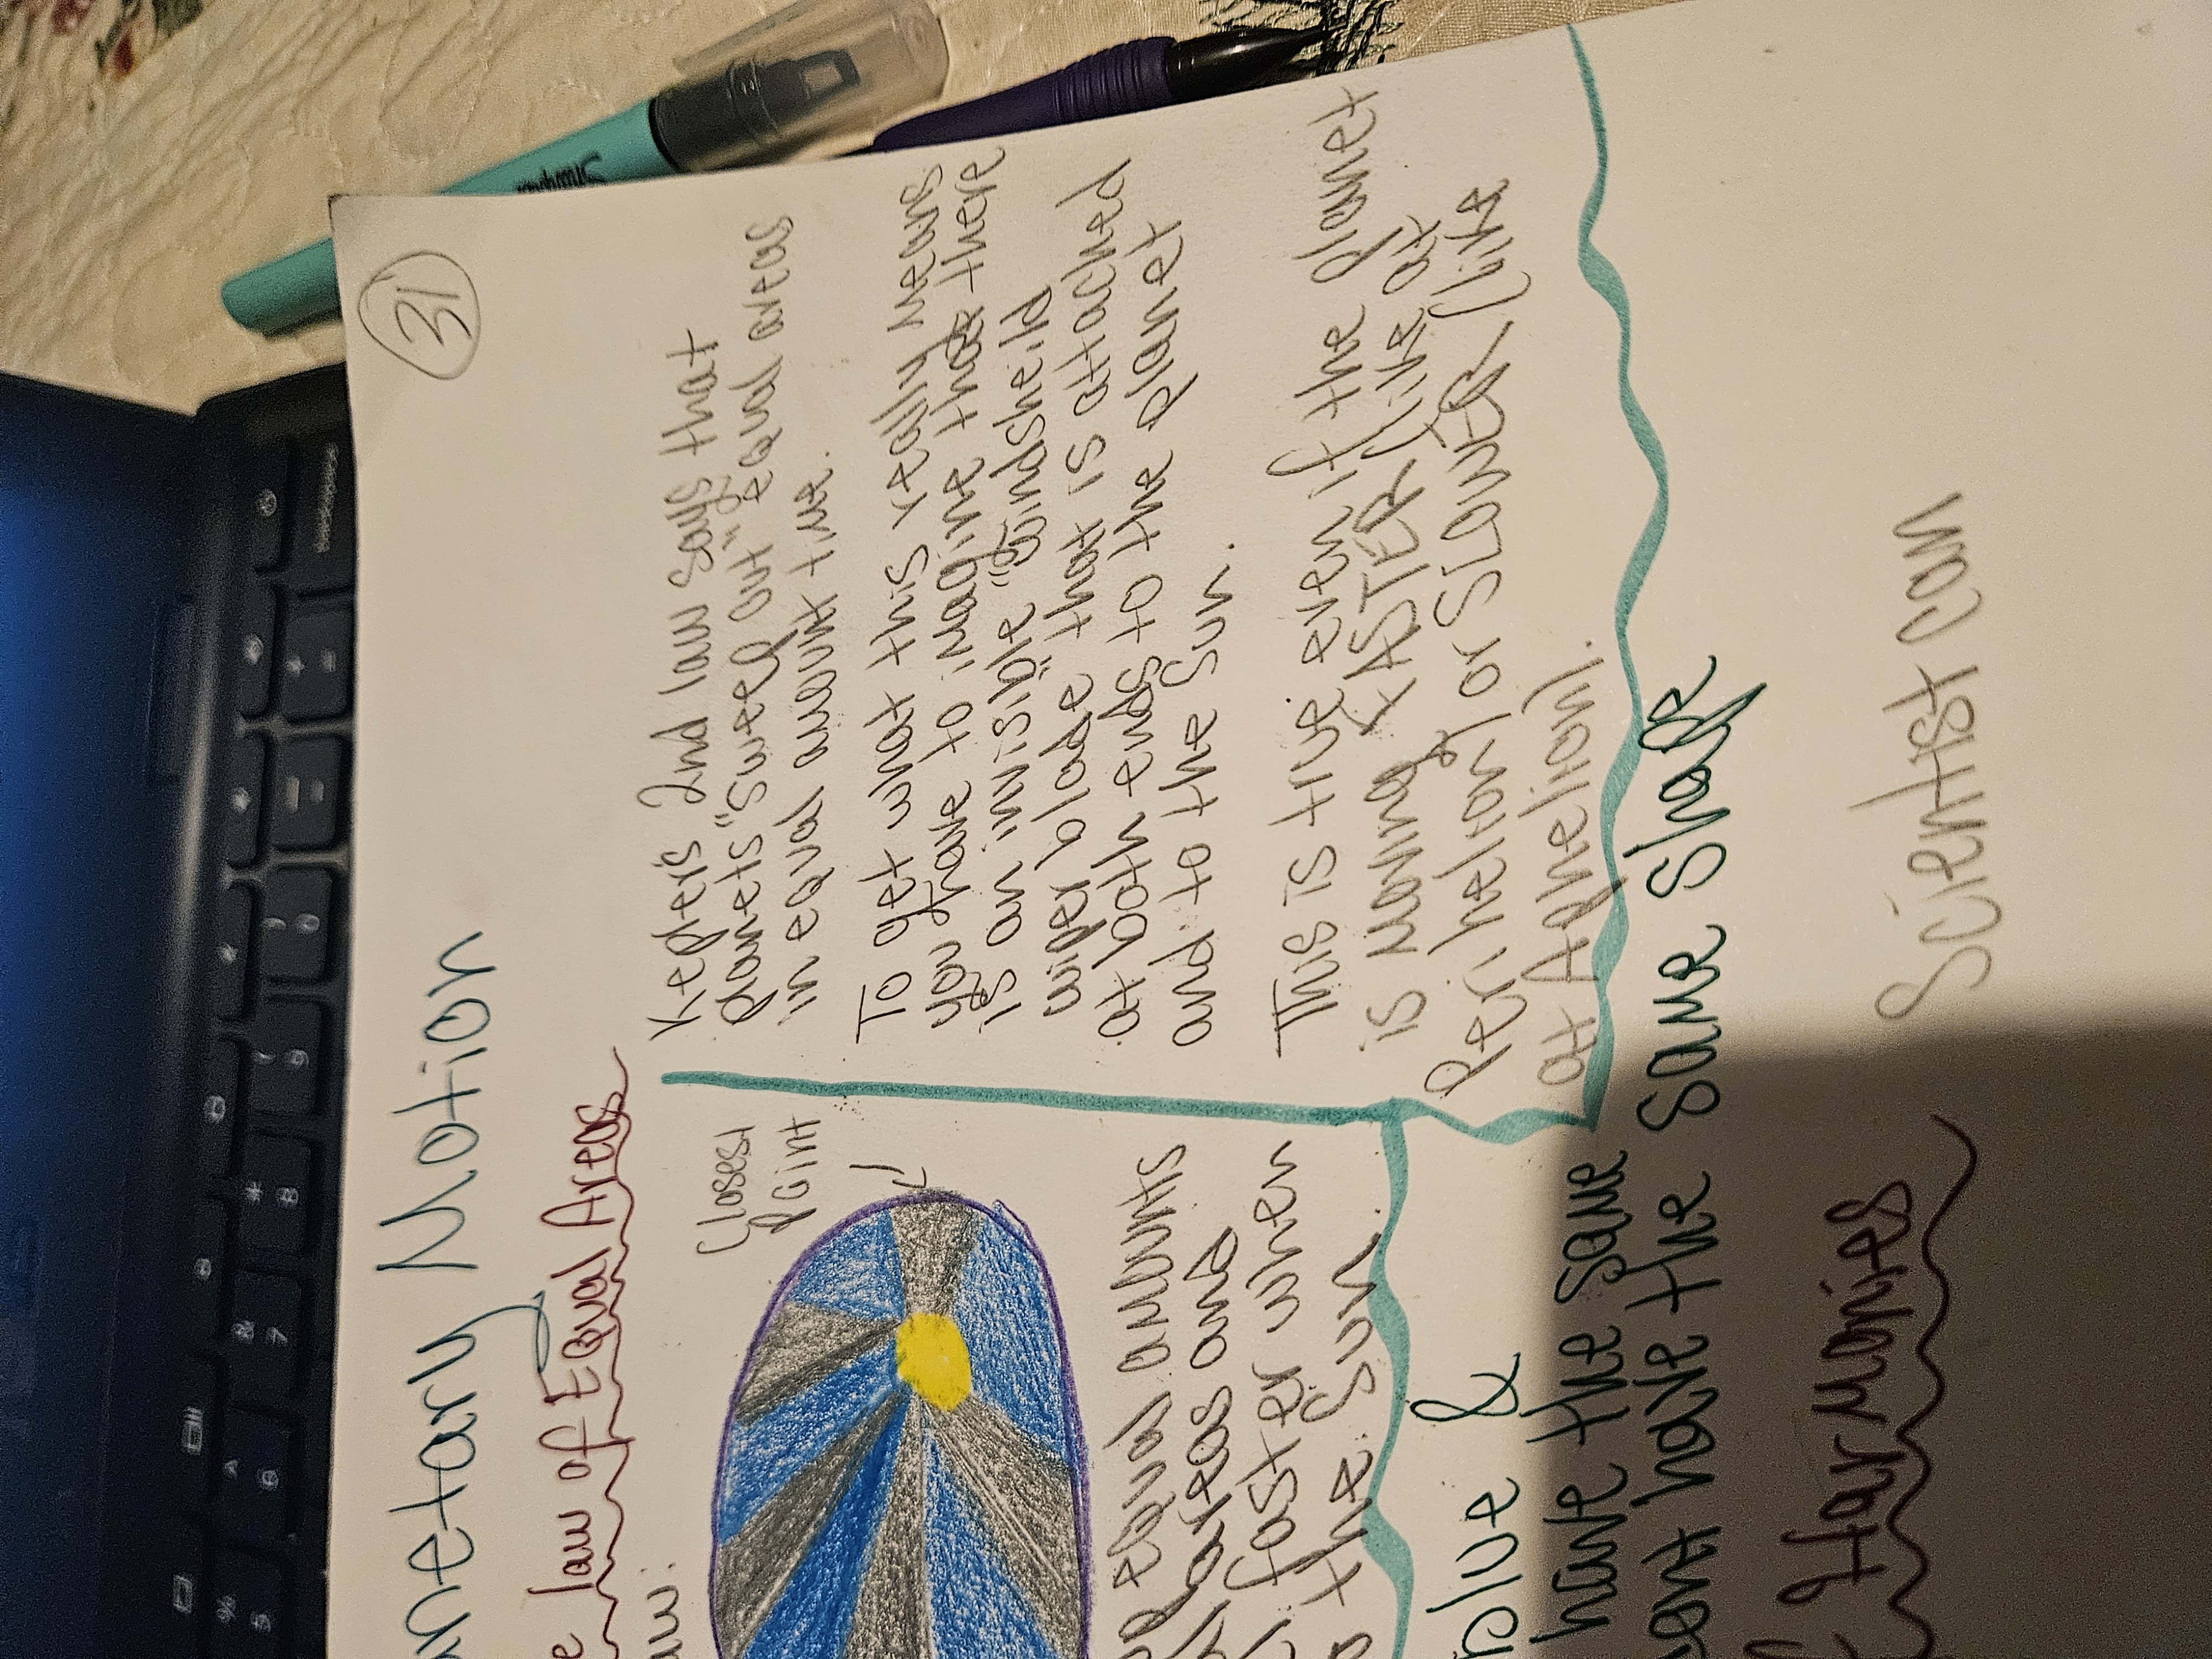 31
anetary Motion
e law of Equal Areas
aw:
Closest
Point
equal amounts
areas are
faster when
the Sun.
Kepler's 2nd law says that
planets "sweep out" equal areas
in equal amount time.
To get what this really means
you have to imagine that there
is an invisible "windsheild
wiper blade" that is attached
at both ends to the planet
and to the sun.
This is true even if the planet
is moving FASTER (like at
Perihelion) or SLOWER (like
at Aphelion).
blue &
have the same
dont have the same shape
f Harmonies
Scientist can
Sharpie